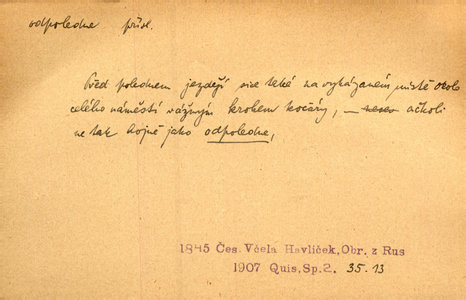 odpoledne přísl.
Před polednem jezdějí sice také na vykázaném místě okolo
celého náměstí vážným krokem kočáry, — ačkoli
ne tak hojně jako odpoledne,
1845 Čes. Včela Havlíček, Obr. z Rus
1907 Quis, Sp. 2. 35.13